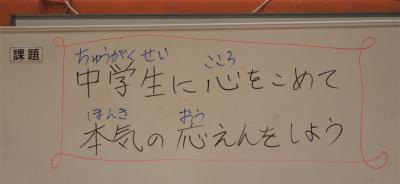 課題
ちゅうがくせい こころ
中学生に心をこめて
ほんき おう
本気の応えんをしよう